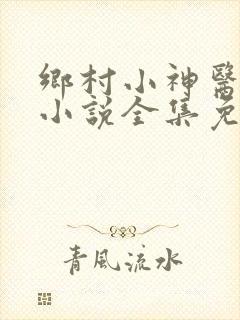 鄉村小神醫
小說全集免
青風流水